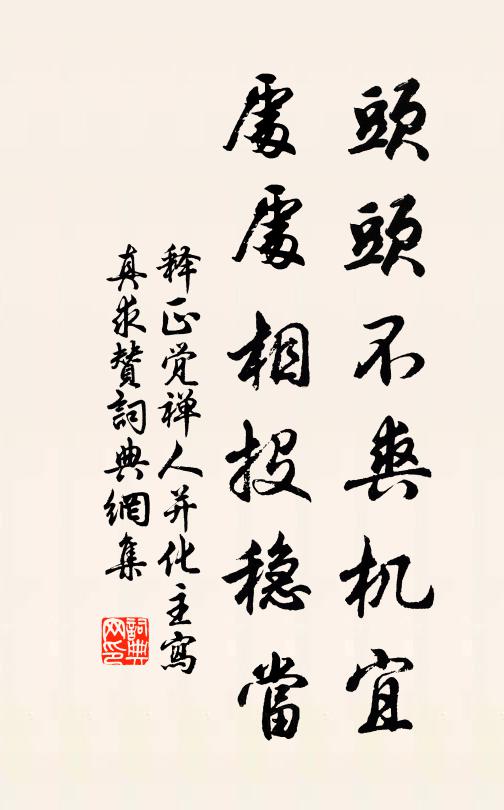 頭頭不爽机宜
處處相投稳當
释正觉禅人并化主寫
真求赞詞典網集
詞典网印